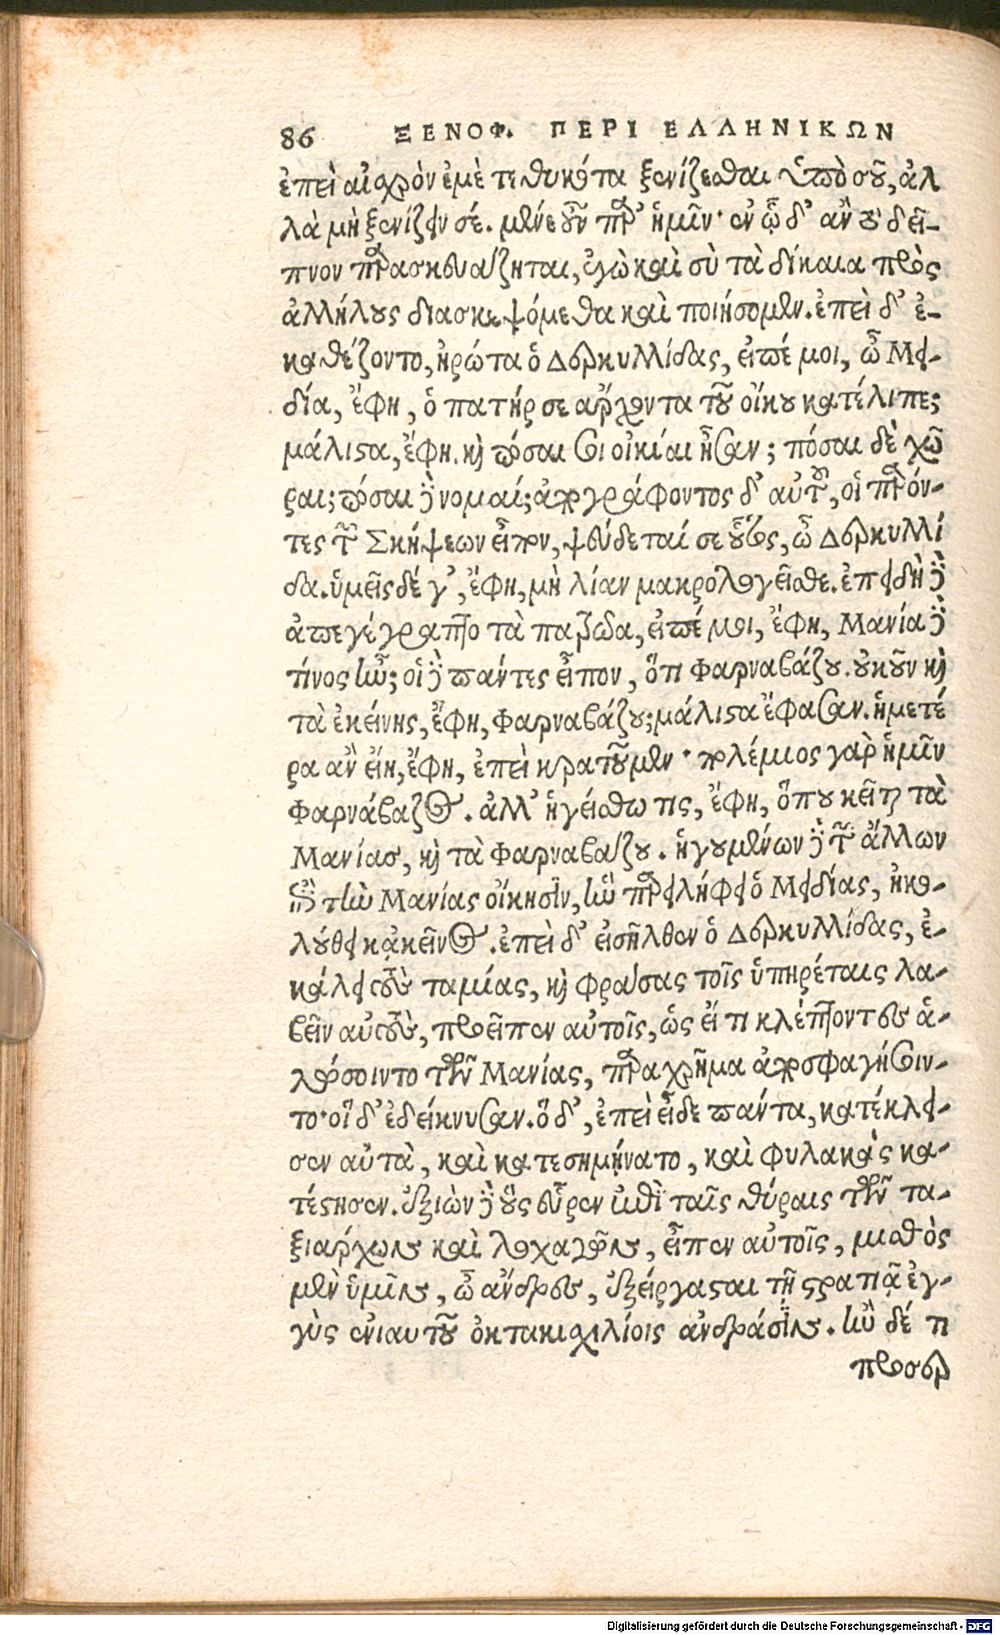 86 ΞΕΝΟΦ. ΠΕΡΙ ΕΛΛΗΝΙΚΩΝ
ἐπεὶ αἰσχρὸν ἐμὲ τεθυκότα ξενίζεσθαι ὑπὸ σοῦ, ἀλ
λὰ μὴ ξενίζειν σέ. μένε οὖν παρ' ἡμῖν· ἐν ᾧ δ' ἂν τὸ δεῖ-
πνον παρασκευάζηται, ἐγὼ καὶ σὺ τὰ δίκαια πρὸς
ἀλλήλους διασκεψόμεθα καὶ ποιήσομεν. ἐπεὶ δ' ἐ-
καθέζοντο, ἠρώτα ὁ Δερκυλλίδας, εἰπέ μοι, ὦ Μει-
δία, ἔφη, ὁ πατήρ σε ἄρχοντα τοῦ οἴκου κατέλιπε;
μάλιστα, ἔφη. καὶ πόσαι σοι οἰκίαι ἦσαν; πόσαι δὲ χῶ
ραι; πόσαι δὲ νομαί; ἀπογράφοντος δ' αὐτοῦ, οἱ παρόν-
τες τῶν Σκήψεων εἶπον, ψεύδεταί σε οὗτος, ὦ Δερκυλλί
δα. ὑμεῖς δέ γ', ἔφη, μὴ λίαν μακρολογεῖσθε. ἐπειδὴ δὲ
ἀπεγέγραπτο τὰ πατρῷα, εἰπέ μοι, ἔφη, Μανία δὲ
τίνος ἦν; οἱ δὲ πάντες εἶπον, ὅτι Φαρναβάζου. οὐκοῦν καὶ
τὰ ἐκείνης, ἔφη, Φαρναβάζου; μάλιστα ἔφασαν. ἡμετέ
ρα ἂν εἴη, ἔφη, ἐπεὶ κρατοῦμεν· πολέμιος γὰρ ἡμῖν
Φαρνάβαζος. ἀλλ' ἡγείσθω τις, ἔφη, ὅπου κεῖται τὰ
Μανίας, καὶ τὰ Φαρναβάζου. ἡγουμένων δὲ τῶν ἄλλων
ἐπὶ τὴν Μανίας οἴκησιν, ἣν παρειλήφει ὁ Μειδίας, ἠκο-
λούθει κἀκεῖνος. ἐπεὶ δ' εἰσῆλθεν ὁ Δερκυλλίδας, ἐ-
κάλει τοὺς ταμίας, καὶ φράσας τοῖς ὑπηρέταις λα-
βεῖν αὐτοὺς, προεῖπεν αὐτοῖς, ὡς εἴ τι κλέπτοντες ἁ-
λώσοιντο τῶν Μανίας, παραχρῆμα ἀποσφαγήσοιν-
το· οἵ δ' ἐδείκνυσαν. ὅ δ', ἐπεὶ εἶδε πάντα, κατέκλει-
σεν αὐτὰ, καὶ κατεσημήνατο, καὶ φύλακας κα-
τέστησεν. ἐξιὼν δὲ οὓς εὗρεν ἐπὶ ταῖς θύραις τῶν τα-
ξιάρχων καὶ λοχαγῶν, εἶπεν αὐτοῖς, μισθὸς
μὲν ὑμῖν, ὦ ἄνδρες, ἐξείργασται τῇ στρατιᾷ ἐγ-
γὺς ἐνιαυτοῦ ὀκτακισχιλίοις ἀνδράσιν. ἢν δέ τι
προσερ